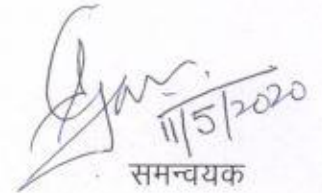 11/5/2020
समन्वयक